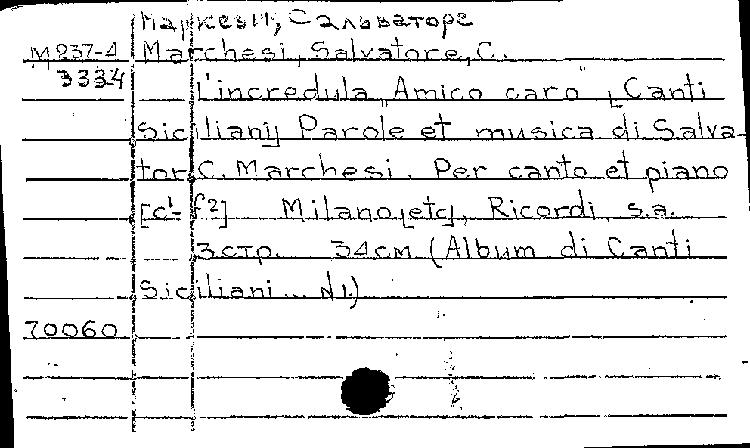 Маркези, Сальваторе
М 237-4 Marchesi, Salvatore, C.
3334 L'incredula „Amico caro" [Canti
siciliani] Parole et musica di Salva-
tor C. Marchesi. Per canto et piano
[c¹- f²] Milano [etc], Ricordi, s.a.
3 стр. 34 см (Album di Canti
Siciliani ... N1.)
70060